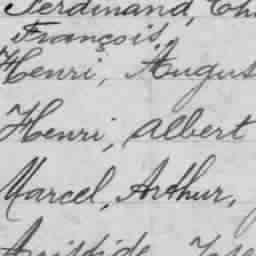 Ferdinand, Ch
François.
Henri, Augus
Henri, Albert
Marcel, Arthur,
Aristide